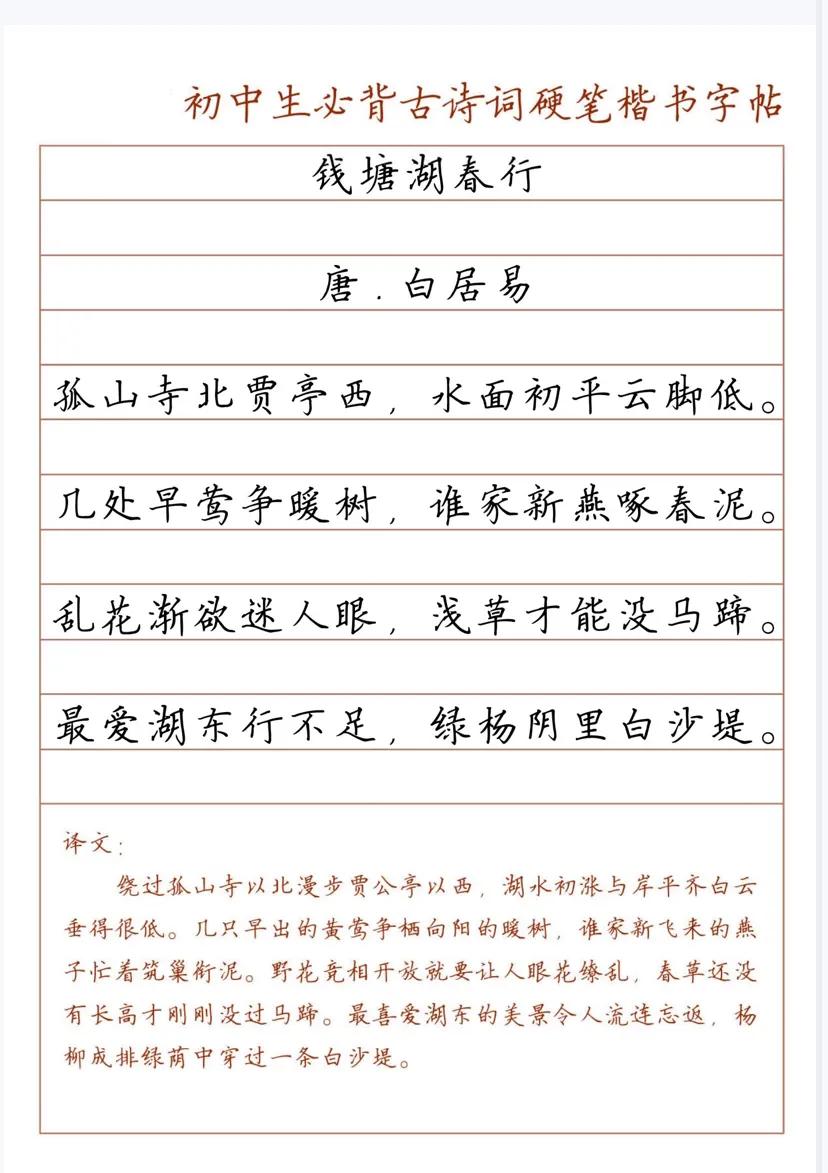 初中生必背古诗词硬笔楷书字帖
钱塘湖春行
唐.白居易
孤山寺北贾亭西,水面初平云脚低。
几处早莺争暖树,谁家新燕啄春泥。
乱花渐欲迷人眼,浅草才能没马蹄。
最爱湖东行不足,绿杨阴里白沙堤。
译文:
绕过孤山寺以北漫步贾公亭以西,湖水初涨与岸平齐白云
垂得很低。几只早出的黄莺争栖向阳的暖树,谁家新飞来的燕
子忙着筑巢衔泥。野花竞相开放就要让人眼花缭乱,春草还没
有长高才刚刚没过马蹄。最喜爱湖东的美景令人流连忘返,杨
柳成排绿荫中穿过一条白沙堤。